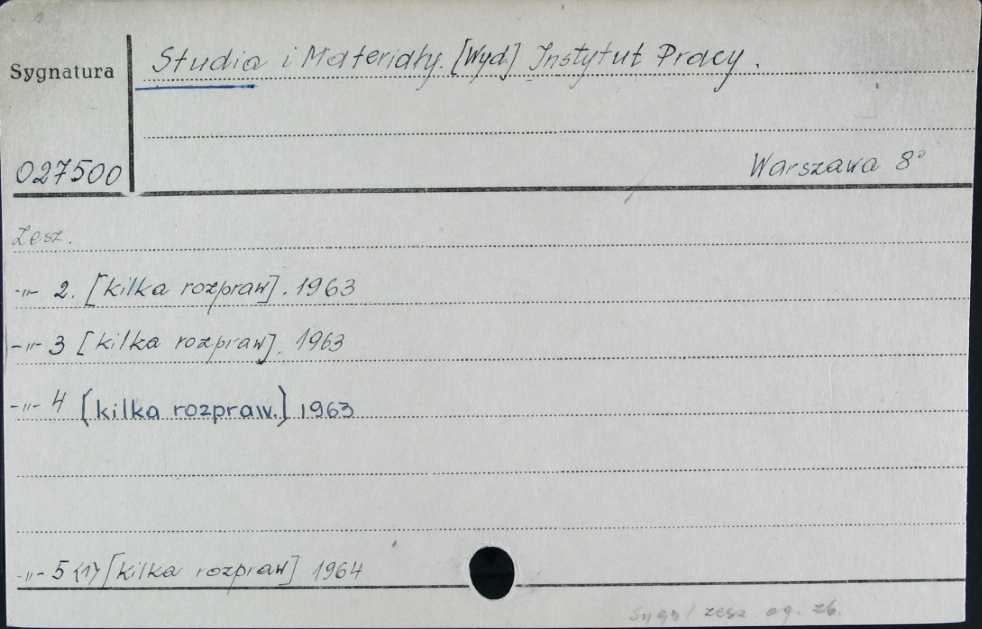 Sygnatura
Studia i Materiały. [Wyd] Instytut Pracy.
027500
Warszawa 8°
Zesz.
-"- 2. [kilka rozpraw]. 1963
-"- 3 [kilka rozpraw]. 1963
-"- 4 [kilka rozpraw.] 1963
-"- 5 <1> [kilka rozpraw] 1964
zesz. og. zb.